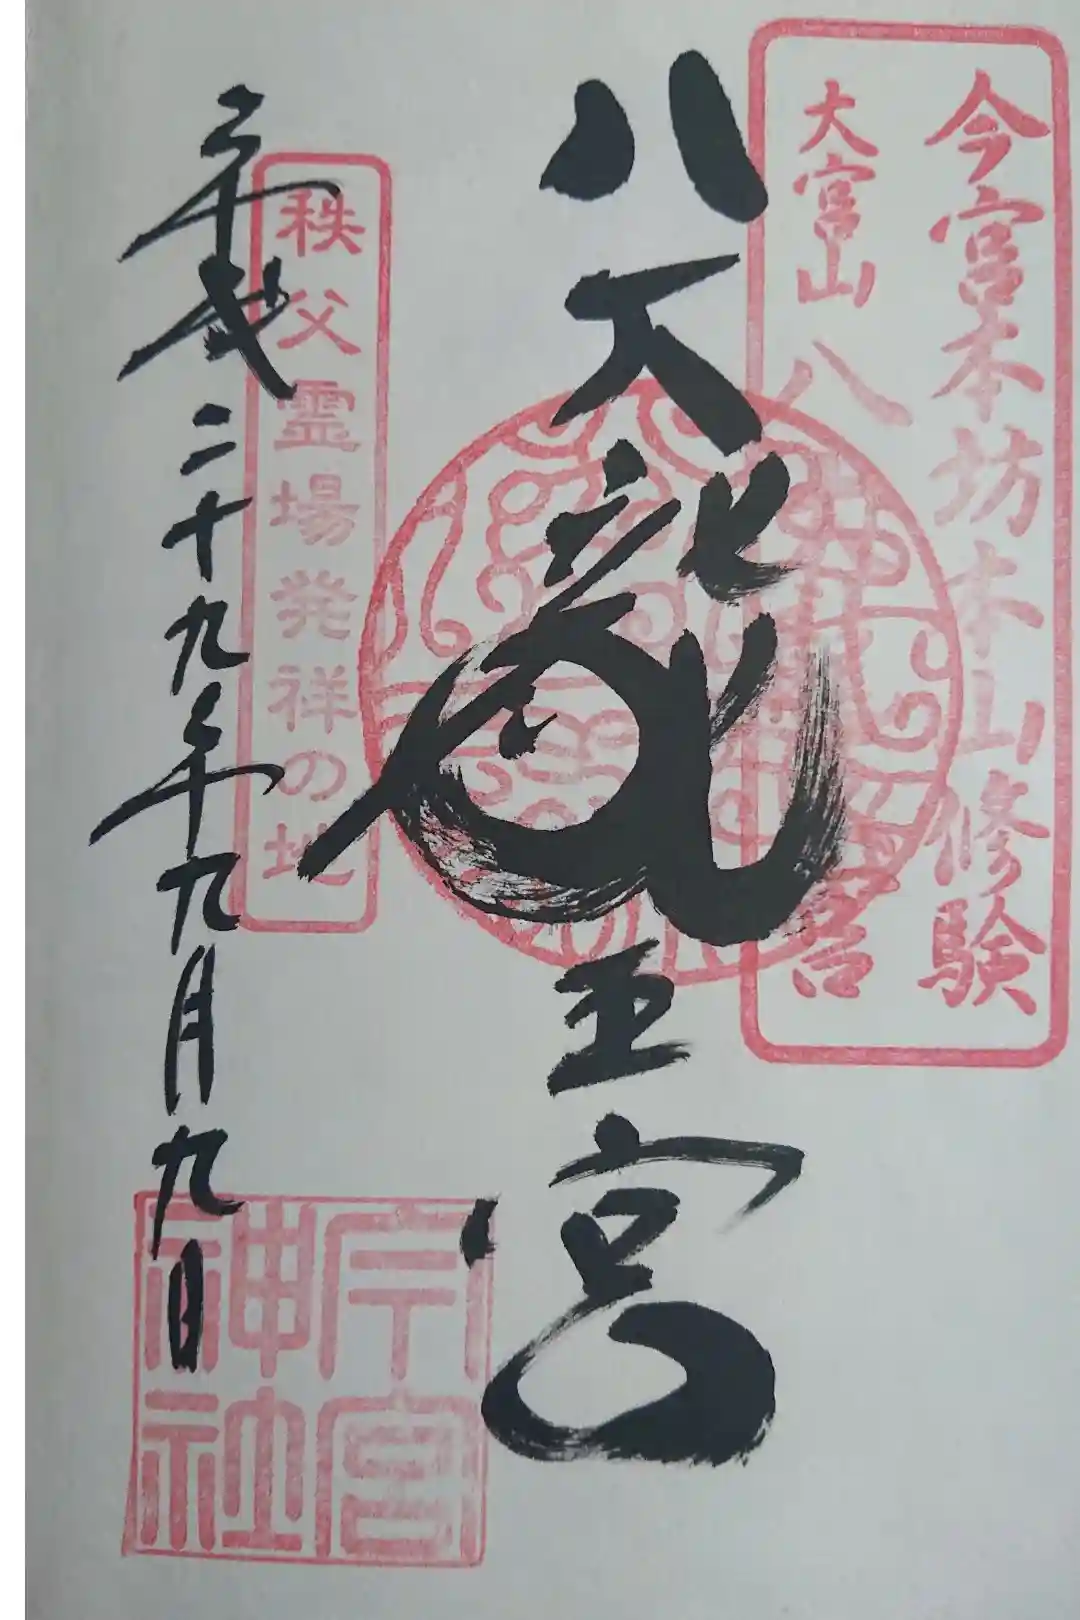 今宮本坊本山修験
大宮山
八大龍王宮
秩父霊場発祥の地
平成二十九年九月九日
今宮
神社